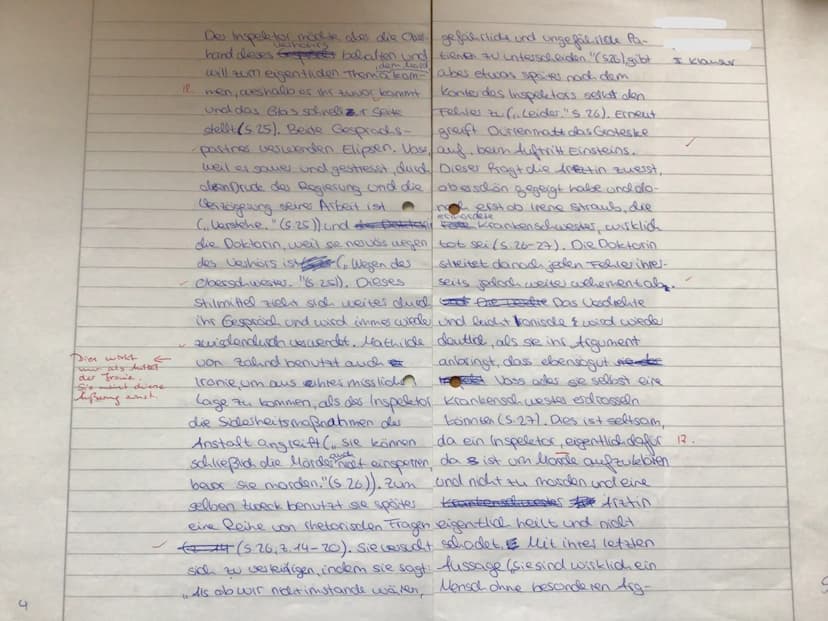 Der Inspektor möchte aber die Ober-
hand dieses Verhörs behalten und
will zum eigentlichen Thema, dem Mord kom-
12.
men, weshalb er ihr zuvor kommt
und das Glas schnell zur Seite
stellt (S.25). Beide Gesprächs-
partner verwenden Elipsen. Voss,
weil er sauer und gestresst, durch
den Druck der Regierung und die
Verzögerung seiner Arbeit ist
(„Verstehe." (S.25)) und
die Doktorin, weil sie nervös wegen
des Verhörs ist („Wegen der
Oberschwester." (S.25)). Dieses
Stilmittel zieht sich weiter durch
ihr Gespräch und wird immer wieder
zwischendurch verwendet. Mathilde
von Zahnd benutzt auch
Ironie, um aus ihrer misslichen
Lage zu kommen, als der Inspektor
die Sicherheitsmaßnahmen der
Anstalt angreift („Sie können
schließlich die Mörder auch nicht einsperren,
bevor sie morden." (S.26)). Zum
selben Zweck benutzt sie später
eine Reihe von rhetorischen Fragen
(S.26, Z.14-20). Sie versucht
sich zu verteidigen, indem sie sagt:
„Als ob wir nicht imstande wären,
Dies wirkt
nur als Mittel
der Ironie.
Sie meint diese
Äußerung ernst.
4
gefährliche und ungefährliche Pa-
tienten zu unterscheiden." (S.26), gibt
aber etwas später nach dem
Konter des Inspektors selbst den
Fehler zu („Leider." S.26). Erneut
greift Dürrenmatt das Groteske
auf, beim Auftritt Einsteins.
Dieser fragt die Ärztin zuerst,
ob er schön gegeigt habe und da-
nach erst ob Irene Straub, die
ermordete Krankenschwester, wirklich
tot sei (S.26-27). Die Doktorin
streitet danach jeden Fehler ihrer-
seits jedoch weiter vehement ab.
Das Verdrehte
und leicht Ironische wird wieder
deutlich, als sie ihr Argument
anbringt, dass ebensogut
Voss oder sie selbst eine
Krankenschwester erdrosseln
könnten (S.27). Dies ist seltsam,
da ein Inspektor, eigentlich dafür
12.
da ist um Morde aufzuklären
und nicht zu morden und eine
Ärztin
eigentlich heilt und nicht
schadet. Mit ihrer letzten
Aussage („Sie sind wirklich ein
Mensch ohne besonderen Arg-